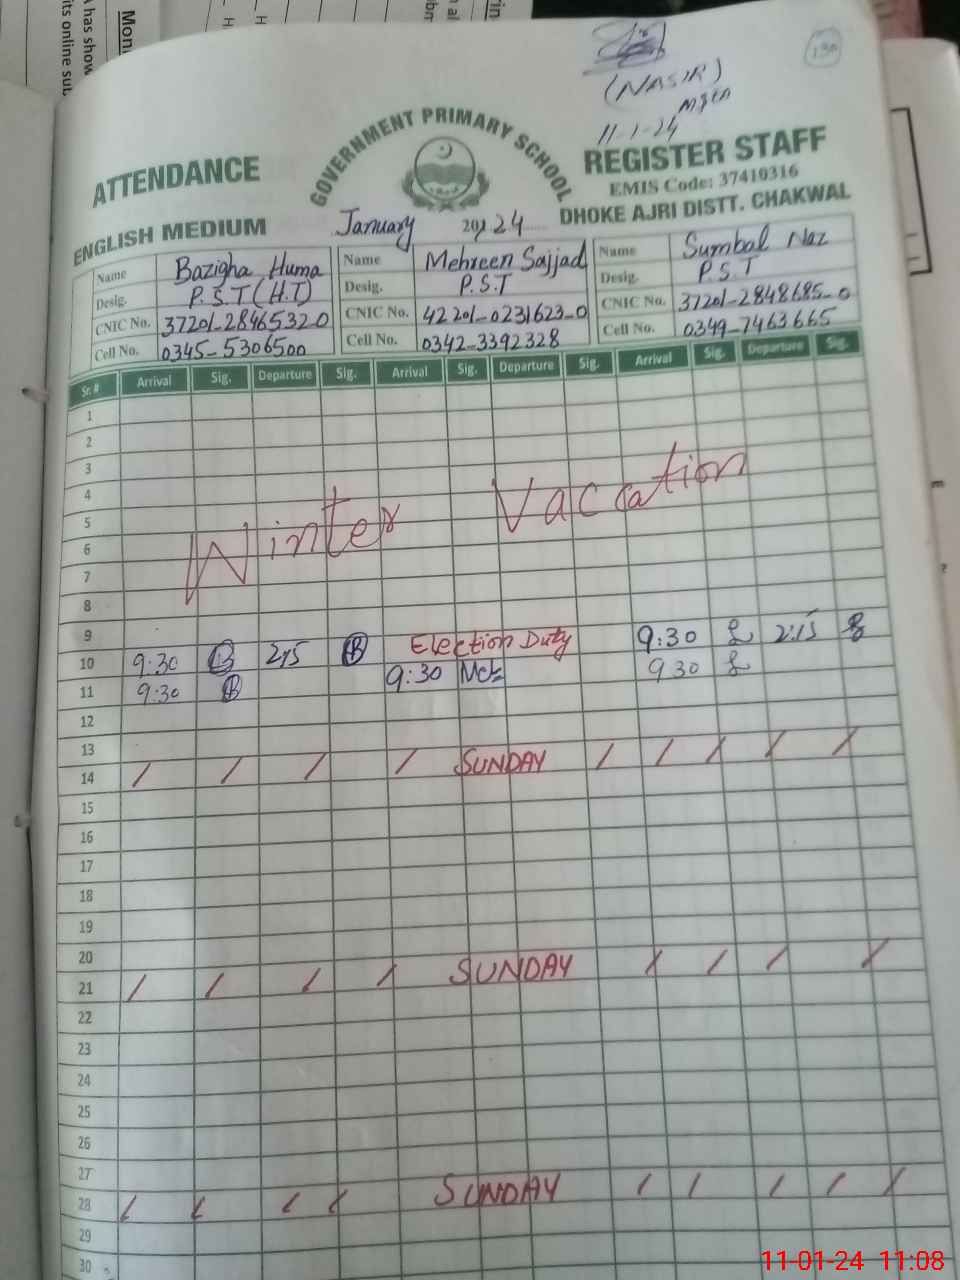 (NASIR)
11-1-24
130
ATTENDANCE
GOVERNMENT PRIMARY SCHOOL
REGISTER STAFF
EMIS Code: 37410316
ENGLISH MEDIUM
January 202 24
DHOKE AJRI DISTT. CHAKWAL
Name Bazigha Huma Name Mehreen Sajjad Name Sumbal Naz
Desig. P.S.T (H.T) Desig. P.S.T Desig. P.S.T
CNIC No. 37201-2846532-0 CNIC No. 42201-0231623-0 CNIC No. 37201-2848685-0
Cell No. 0345-5306500 Cell No. 0342-3392328 Cell No. 0349-7463665
Sr.# Arrival Sig. Departure Sig. Arrival Sig. Departure Sig. Arrival Sig. Departure Sig.
1
2
3
4
Winter Vaccation
5
6
7
8
9
10 9:30 B 2:15 B Election Duty 9:30 2:15
11 9:30 B 9:30 9 30
12
13
14 / / / / SUNDAY / / / / /
15
16
17
18
19
20
21 / / / / SUNDAY / / / /
22
23
24
25
26
27
28 / / / / SUNDAY / / / / /
29
30
11-01-24 11:08